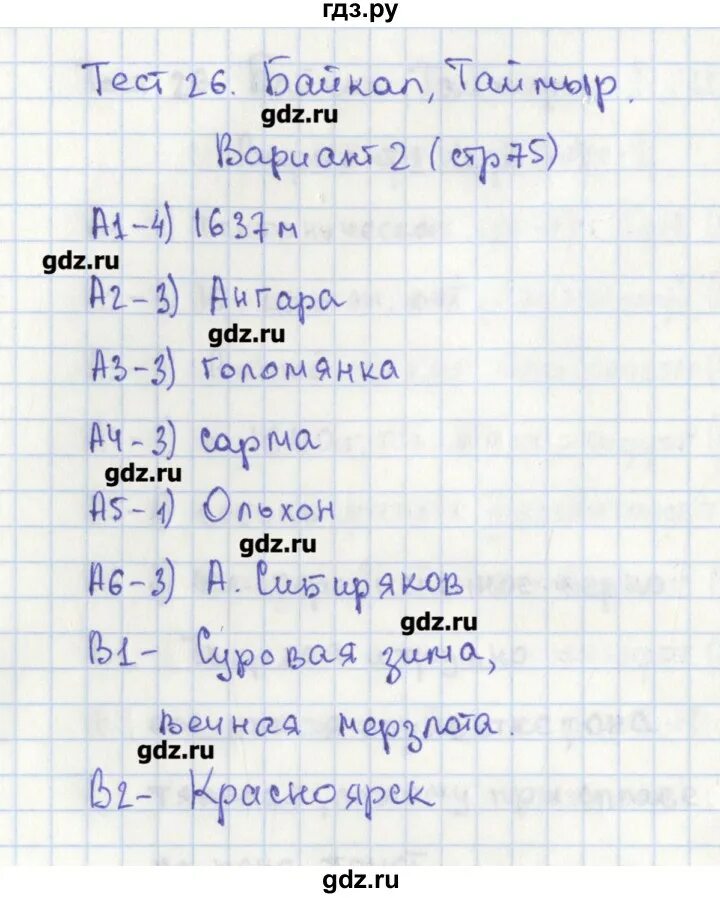 гдз.ру
Тест 26. Байкал, Таймыр.
gdz.ru
Вариант 2 (стр 75)
А1-4) 1637м
gdz.ru
А2-3) Ангара
gdz.ru
А3-3) голомянка
А4-3) сарма
gdz.ru
А5-1) Ольхон
gdz.ru
А6-3) А. Сибиряков
gdz.ru
В1- Суровая зима,
вечная мерзлота.
gdz.ru
В2- Красноярск
gdz.ru